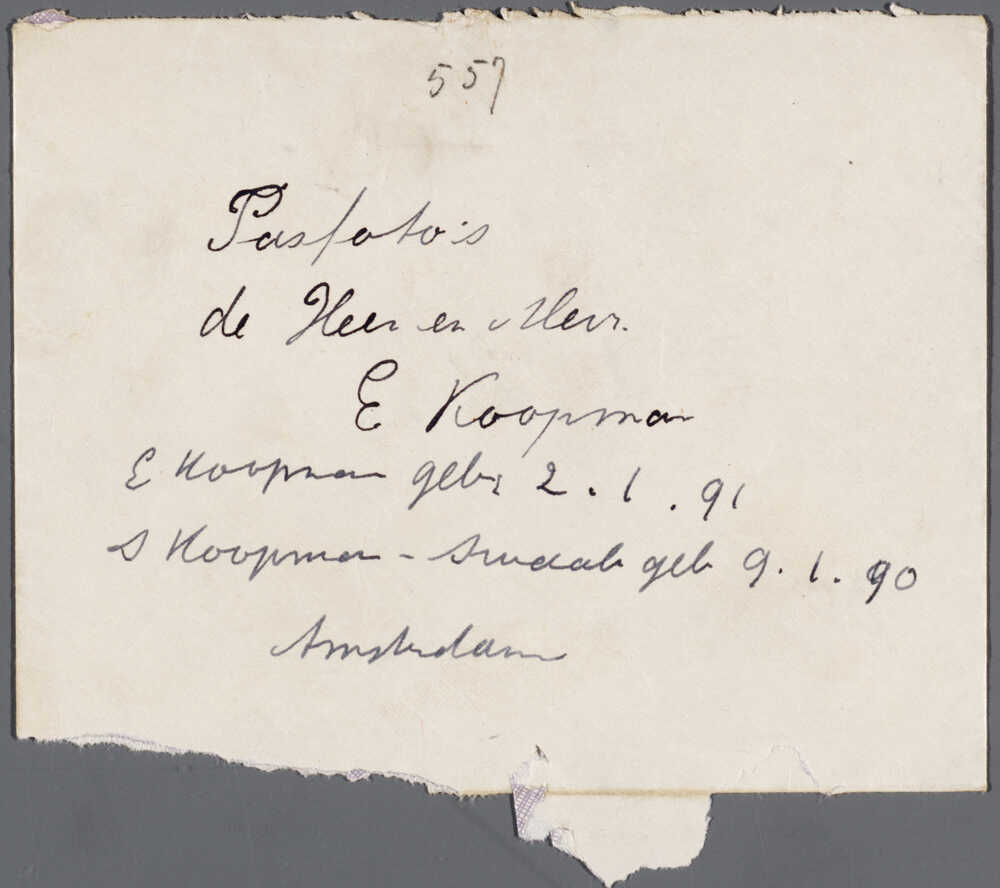 557
Pasfoto's
de Heer en Mevr.
E Koopman
E Koopman geb. 2.1.91
S Koopman - Swaab geb 9.1.90
Amsterdam